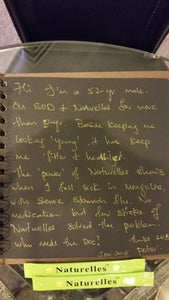 Hi I'm a 52-yr male.
On SOD & Naturelles for more
than 2 yr. Beside keeping me
looking 'young', it has keep
me fitter & healthier.
The 'power' of Naturelles shows
when I fell sick in
with severe stomach flu. No
medication but five strips of
Naturelles solved the problem.
Who needs the Doc!
Peter
Naturelles
Naturelles